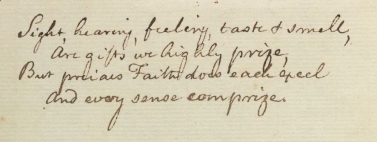 Sight, hearing, feeling, taste & smell,
Are gifts we highly prize,
But precious Faith does each excel
And every sense comprize.